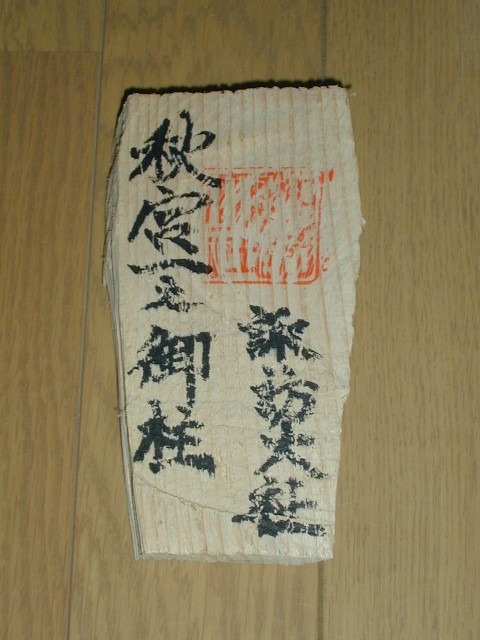 諏訪大社
秋宮一之御柱